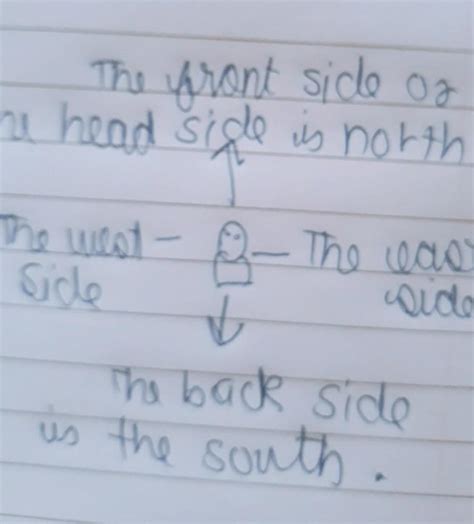 The front side or
head side is north
The west — — The east
side side
The back side
is the south.